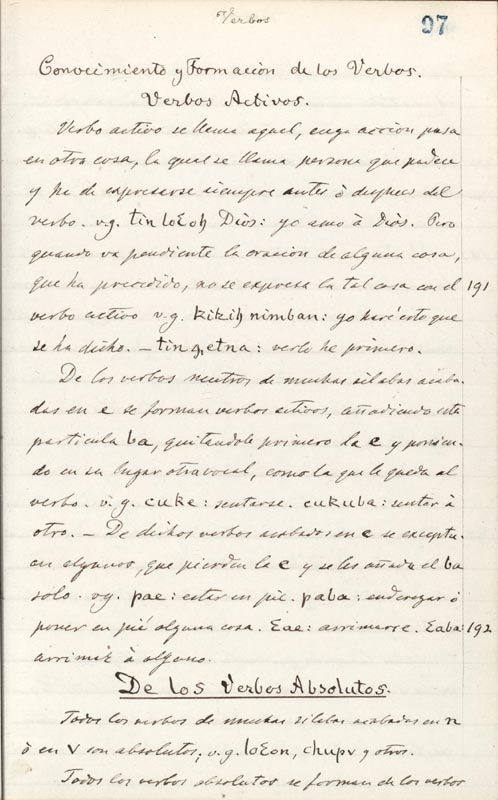 Verbos
97
Conocimiento y Formacion de los Verbos.
Verbos Activos.
Verbo activo se llama aquel, cuya accion pasa
en otra cosa, la qual se llama persona que padece
y ha de expresarse siempre antes ò despues del
verbo. v.g. tin loƐoh Dios: yo amo à Diòs. Pero
quando va pendiente la oracion de alguna cosa,
que ha precedido, no se expresa la tal cosa con el 191
verbo activo v.g. kikih nimban: yo haré esto que
se ha dicho. — verlo he primero.
De los verbos neutros de muchas silabas acaba-
das en e se forman verbos activos, añadiendo esta
particula ba, quitandole primero la e y ponien-
do en su lugar otra vocal, como la que le queda al
verbo. v.g. cuke: sentarse. cukuba: sentar à
otro. — De dichos verbos acabados en e se exceptu-
an algunos, que pierden la e y se les añade el ba
solo. vg. pae: estar en pié. paba: enderezar ò
poner en pié alguna cosa. Ɛae: arrimarse. Ɛaba: 192
arrimar à alguno.
De los Verbos Absolutos.
Todos los verbos de muchas silabas acabados en n
ò en v son absolutos, v.g. loƐon, chupv y otros.
Todos los verbos absolutos se forman de los verbos